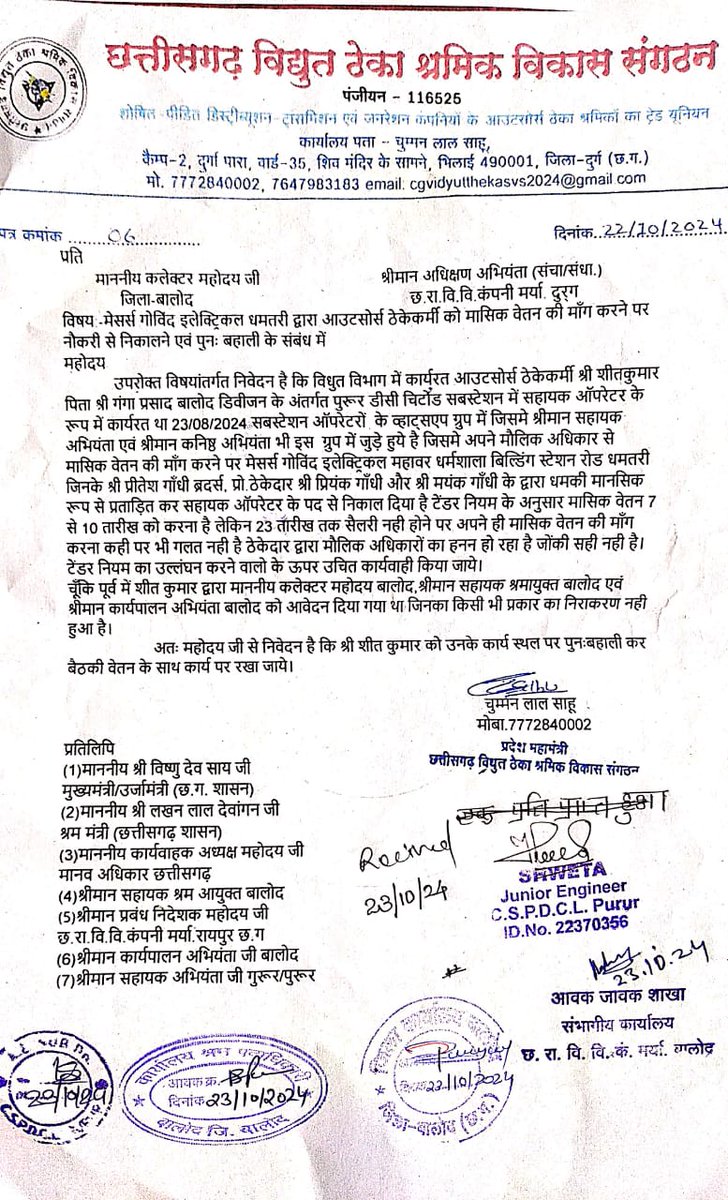 छत्तीसगढ़ विद्युत ठेका श्रमिक विकास संगठन
पंजीयन - 116525
शोषित-पीड़ित डिस्ट्रीब्यूशन-ट्रांसमिशन एवं जनरेशन कंपनियों के आउटसोर्स ठेका श्रमिकों का ट्रेड यूनियन
कार्यालय पता - चुम्मन लाल साहू,
कैम्प-2, दुर्गा पारा, वार्ड-35, शिव मंदिर के सामने, भिलाई 490001, जिला-दुर्ग (छ.ग.)
मो. 7772840002, 7647983183 email: cgvidyutthekasvs2024@gmail.com
पत्र कमांक ........06...............
दिनांक..22/10/2024
प्रति
माननीय कलेक्टर महोदय जी
श्रीमान अधिक्षण अभियंता (संचा/संधा.)
जिला-बालोद
छ.रा.वि.वि.कंपनी मर्या. दुर्ग
विषय -मेसर्स गोविंद इलेक्ट्रिकल धमतरी द्वारा आउटसोर्स ठेकेकर्मी को मासिक वेतन की माँग करने पर
नौकरी से निकालने एवं पुनः बहाली के संबंध में
महोदय
उपरोक्त विषयांतर्गत निवेदन है कि विधुत विभाग में कार्यरत आउटसोर्स ठेकेकर्मी श्री शीतकुमार
पिता श्री गंगा प्रसाद बालोद डिवीजन के अंतर्गत पुरूर डीसी चिटौद सबस्टेशन में सहायक ऑपरेटर के
रूप में कार्यरत था 23/08/2024 सबस्टेशन ऑपरेटरों के व्हाट्सएप ग्रुप में जिसमे श्रीमान सहायक
अभियंता एवं श्रीमान कनिष्ठ अभियंता भी इस ग्रुप में जुड़े हुये है जिसमे अपने मौलिक अधिकार से
मासिक वेतन की माँग करने पर मेसर्स गोविंद इलेक्ट्रिकल महावर धर्मशाला बिल्डिंग स्टेशन रोड धमतरी
जिनके श्री प्रीतेश गाँधी ब्रदर्स, प्रो.ठेकेदार श्री प्रियंक गाँधी और श्री मयंक गाँधी के द्वारा धमकी मानसिक
रूप से प्रताड़ित कर सहायक ऑपरेटर के पद से निकाल दिया है टेंडर नियम के अनुसार मासिक वेतन 7
से 10 तारीख को करना है लेकिन 23 तारीख तक सैलरी नही होने पर अपने ही मासिक वेतन की माँग
करना कही पर भी गलत नही है ठेकेदार द्वारा मौलिक अधिकारों का हनन हो रहा है जोंकी सही नही है।
टेंडर नियम का उल्लंघन करने वालो के ऊपर उचित कार्यवाही किया जाये।
चूँकि पूर्व में शीत कुमार द्वारा माननीय कलेक्टर महोदय बालोद,श्रीमान सहायक श्रमायुक्त बालोद एवं
श्रीमान कार्यपालन अभियंता बालोद को आवेदन दिया गया था जिनका किसी भी प्रकार का निराकरण नही
हुआ है।
अतः महोदय जी से निवेदन है कि श्री शीत कुमार को उनके कार्य स्थल पर पुनःबहाली कर
बैठकी वेतन के साथ कार्य पर रखा जाये।
चुम्मन लाल साहू
मोबा.7772840002
प्रदेश महामंत्री
छत्तीसगढ़ विद्युत ठेका श्रमिक विकास संगठन
प्रतिलिपि
(1)माननीय श्री विष्णु देव साय जी
मुख्यमंत्री/उर्जामंत्री (छ.ग. शासन)
(2)माननीय श्री लखन लाल देवांगन जी
श्रम मंत्री (छत्तीसगढ़ शासन)
(3)माननीय कार्यवाहक अध्यक्ष महोदय जी
मानव अधिकार छत्तीसगढ़
(4)श्रीमान सहायक श्रम आयुक्त बालोद
(5)श्रीमान प्रबंध निदेशक महोदय जी
छ.रा.वि.वि.कंपनी मर्या.रायपुर छ.ग
(6)श्रीमान कार्यपालन अभियंता जी बालोद
(7)श्रीमान सहायक अभियंता जी गुरूर/पुरूर
एक प्रति प्राप्त हुआ
Received
23/10/24
SHWETA
Junior Engineer
C.S.P.D.C.L. Purur
ID.No. 22370356
23.10.24
आवक जावक शाखा
संभागीय कार्यालय
छ. रा. वि. वि. कं. मर्या. बालोद
22/10/24
कार्यालय श्रम पदाधिकारी
आवक क्र.
दिनांक 23/10/2024
बालोद जि. बालोद
22/10/2024
जिला-बालोद (छ.ग.)